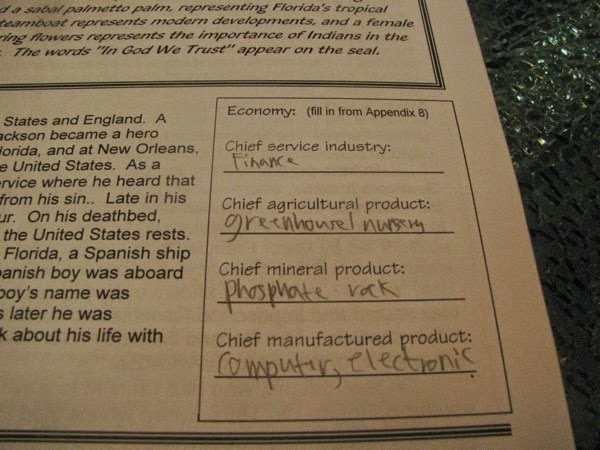 d a sabal palmetto palm, representing Florida's tropical
teamboat represents modern developments, and a female
ring flowers represents the importance of Indians in the
The words "In God We Trust" appear on the seal.
States and England. A
ackson became a hero
lorida, and at New Orleans,
e United States. As a
ervice where he heard that
from his sin.. Late in his
ur. On his deathbed,
the United States rests.
Florida, a Spanish ship
panish boy was aboard
boy's name was
s later he was
k about his life with
Economy: (fill in from Appendix 8)
Chief service industry:
Finance
Chief agricultural product:
greenhousel nursery
Chief mineral product:
phosphate rock
Chief manufactured product:
Computer, electronic